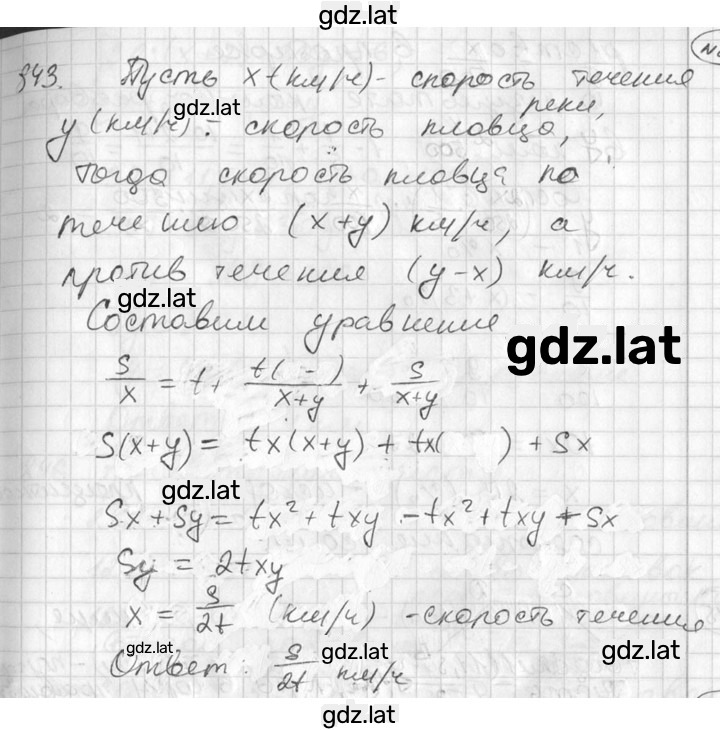 gdz.lat
343. Пусть x (км/ч) - скорость течения
реки,
gdz.lat
y (км/ч) - скорость пловца,
тогда скорость пловца по
течению (x+y) км/ч, а
против течения (y-x) км/ч.
gdz.lat
Составим уравнение
gdz.lat
S/x = t + t( - )/(x+y) + S/(x+y)
S(x+y) = tx(x+y) + tx( ) + Sx
gdz.lat
Sx + Sy = tx² + txy - tx² + txy + Sx
Sy = 2txy
x = S/2t (км/ч) - скорость течения
gdz.lat
gdz.lat
gdz.lat
Ответ: S/2t км/ч
gdz.lat